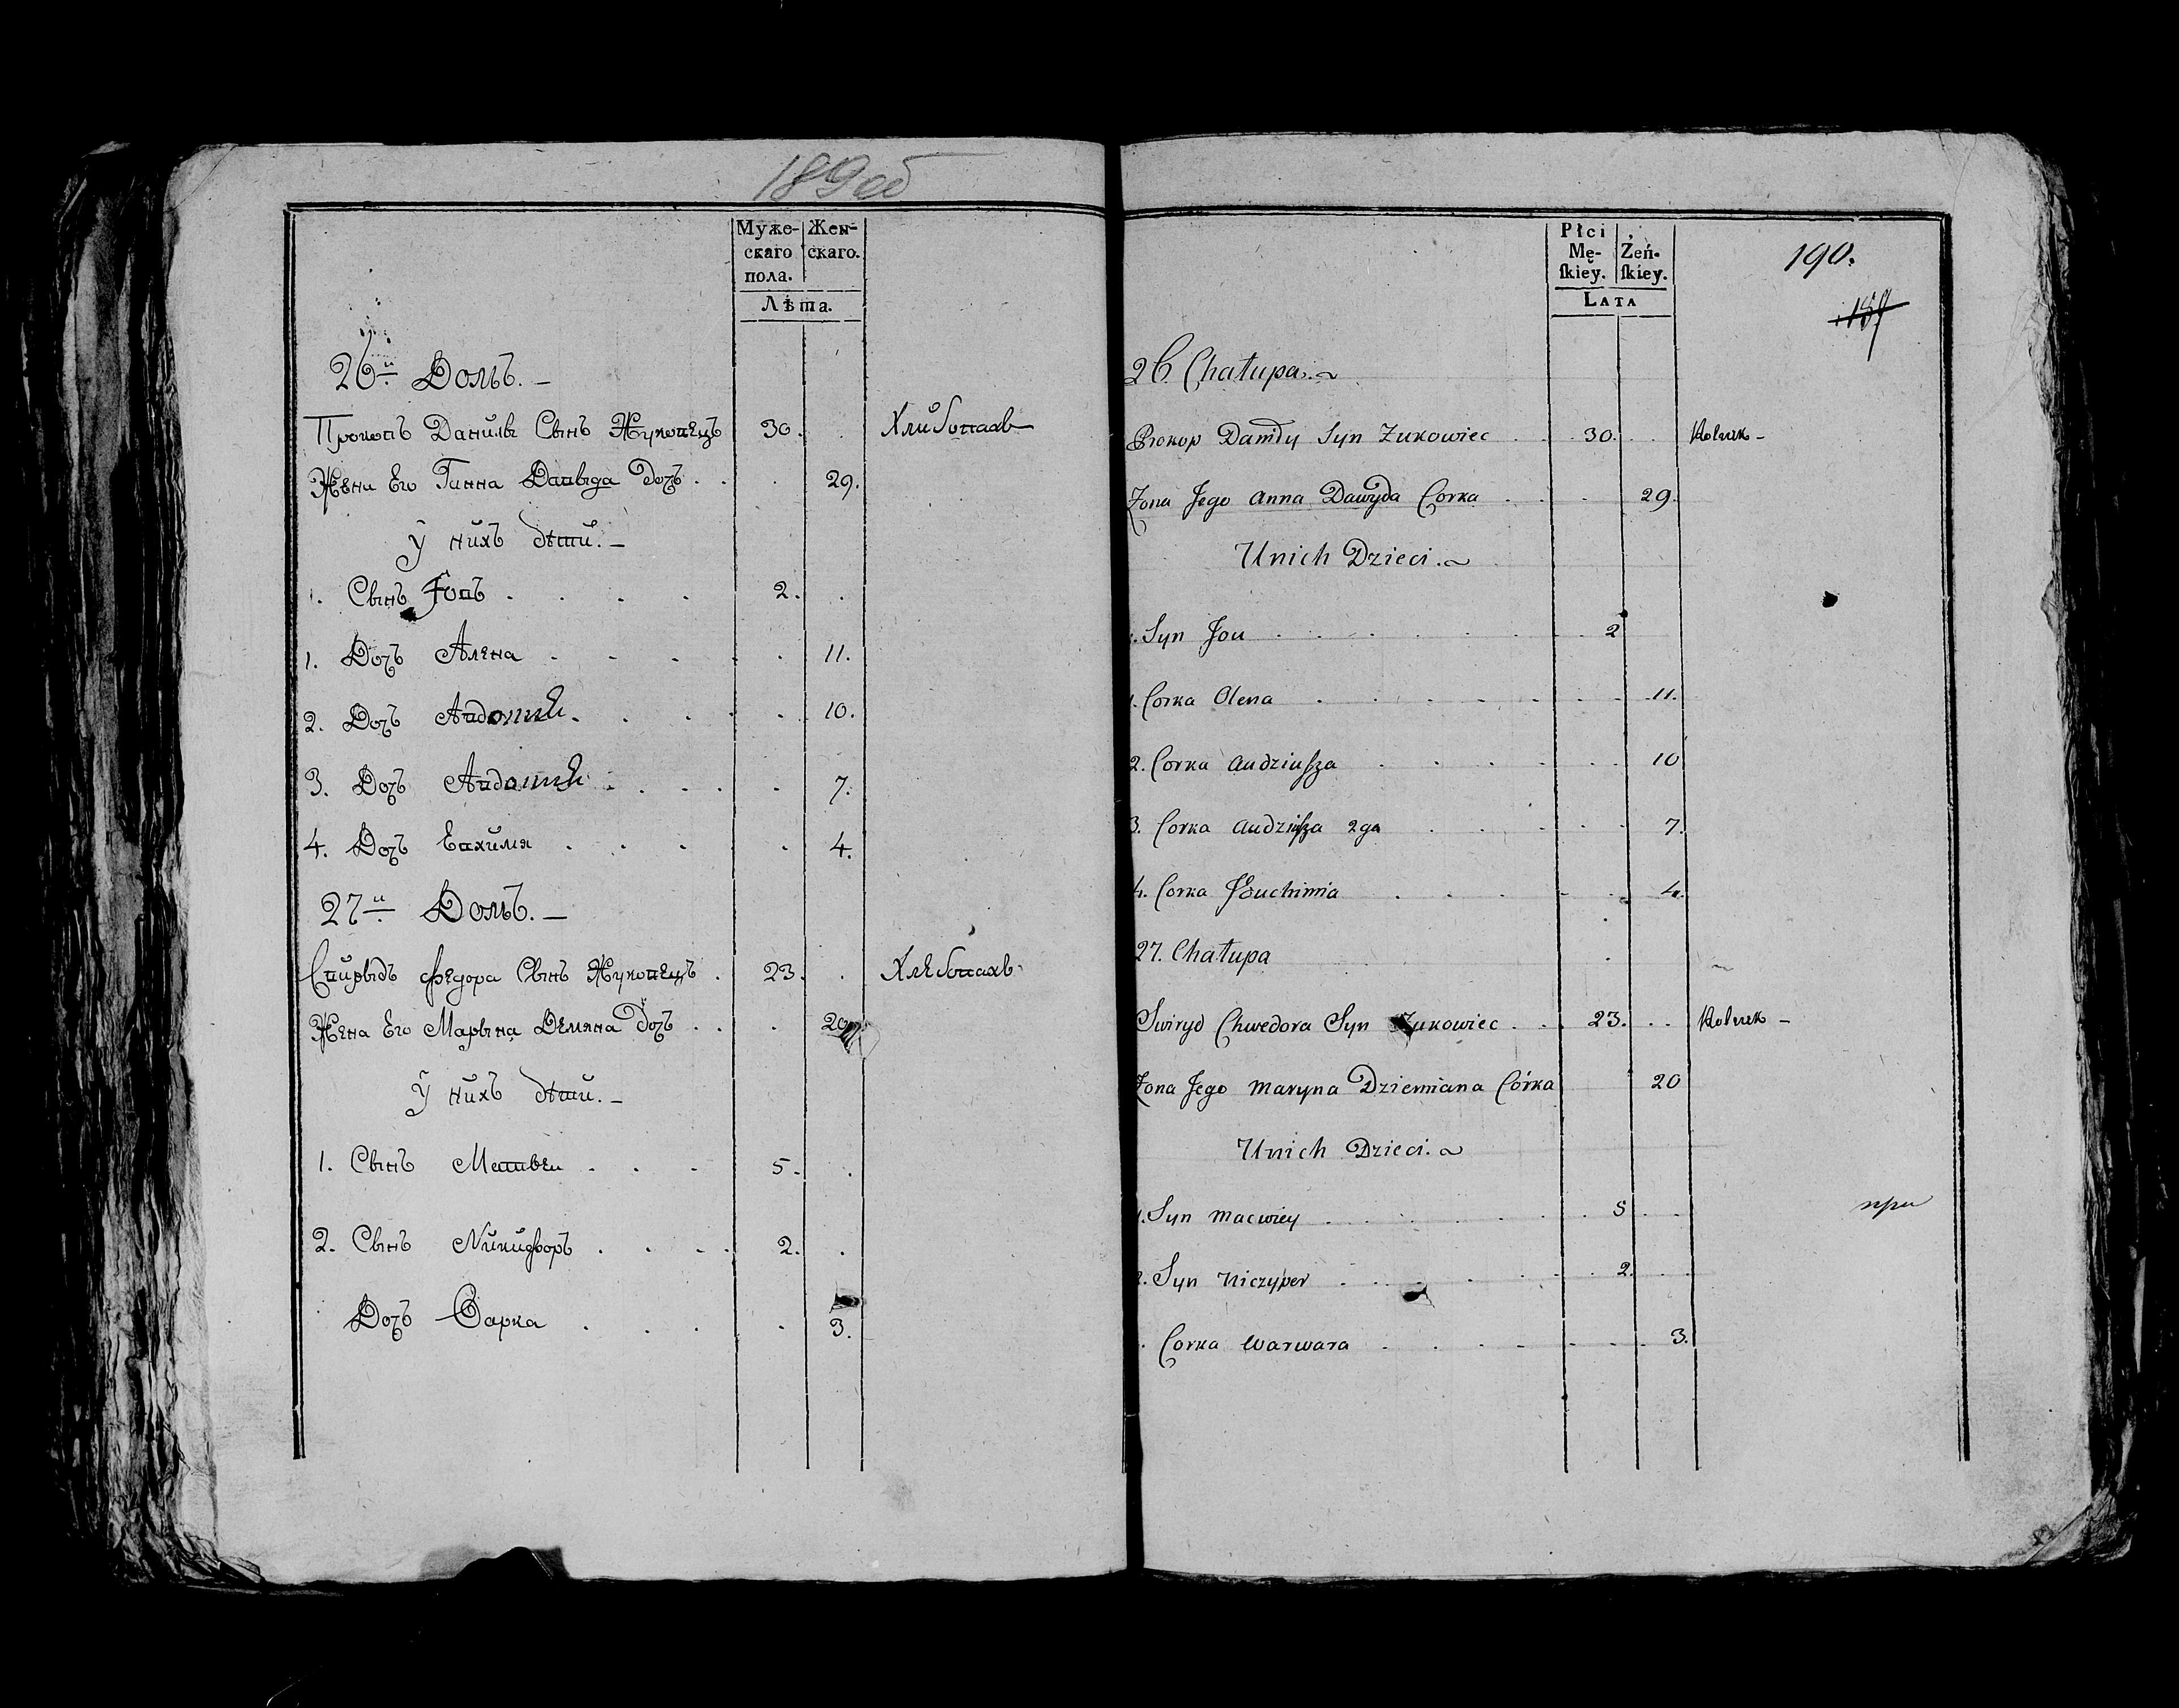 189 об
Муже- Жен-
скаго скаго.
пола.
Лѣта.
26й Домъ.
Прокопъ Данилы Сынъ Жуковецъ 30. Хлибопахъ
Жена Его Ганна Давыда дочъ 29.
У нихъ дѣти.
1. Сынъ Іовъ 2.
1. Дочъ Алена 11.
2. Дочъ 10.
3. Дочъ 7.
4. Дочъ Евхимя 4.
27й Домъ.
Свирыдъ Федора Сынъ Жуковецъ 23. Хлебопахъ
Жена Его Марына Демяна Дочъ 20
У нихъ дѣти.
1. Сынъ Матвеи 5.
2. Сынъ Никифоръ 2.
Дочъ Варка 3.
Płci
Mę- Żeń-
ſkiey. ſkiey.
LATA
190.
26 Chałupa.
Prokop Syn Zukowiec 30. Rolnik
Zona Jego Anna Dawyda Corka 29.
Unich Dzieci.
1. Syn Jou 2
1. Corka Olena 11.
2. Corka Audziuſza 10
3. Corka Audziuſza 2ga 7.
4. Corka Jeuchimia 4.
27. Chałupa
Swiryd Chwedora Syn Zukowiec 23. Rolnik
Zona Jego Maryna Dziemiana Córka 20
Unich Dzieci.
1. Syn Macwiey 5
2. Syn Niczyper 2.
Corka Warwara 3.
при